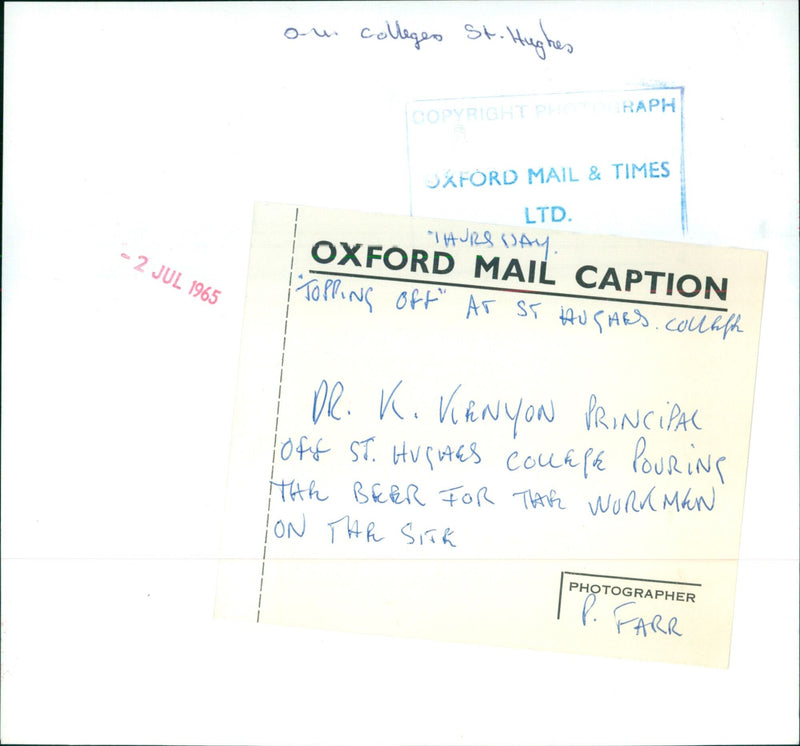 O.U. Colleges St. Hughes
COPYRIGHT PHOTOGRAPH
OXFORD MAIL & TIMES
LTD.
- 2 JUL 1965
THURSDAY.
OXFORD MAIL CAPTION
"TOPPING OFF" AT ST HUGHES. COLLEGE
DR. K. KENYON PRINCIPAL
OFF ST. HUGHES COLLEGE POURING
THE BEER FOR THE WORKMEN
ON THE SITE
PHOTOGRAPHER
P. FARR